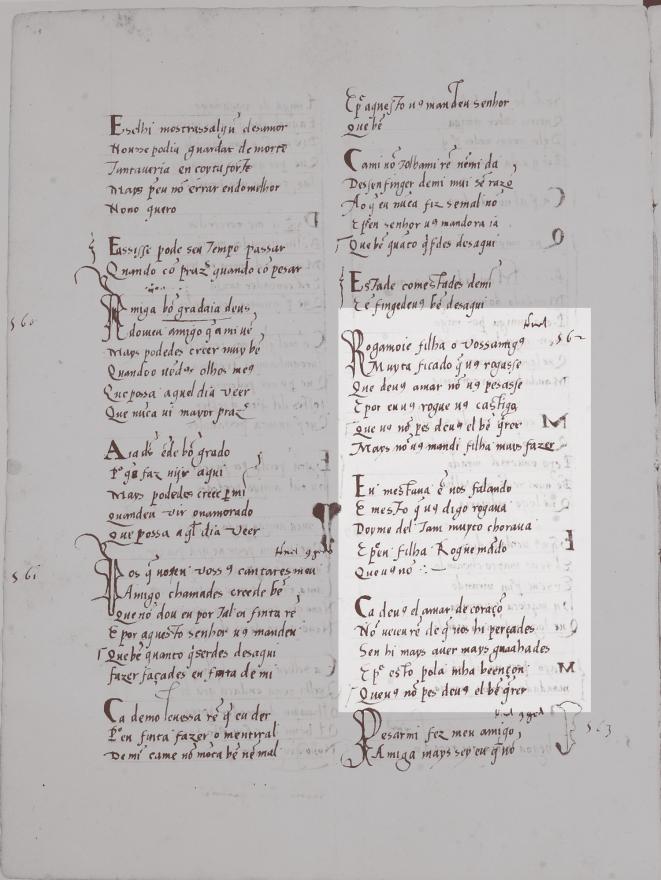 E selhi mostrassalgũ desamor
Nonxe podia guardar de morte
Jantaueria en coyta forte
Mays peu nō errar endomelhor
Nono quero
E assisse pode seu tempo passar
Quando cō praz̃ quando cō pesar
Amiga bō gradaia deus
do meu amigo q̃ a mi uẽ
Mays podedes creer muy bẽ
Quando o uir dos olhos meg
Que possa aquel dia veer
Que nuca ui mayor praz̃
Aia dš ende bō grado
Mays podedes creer per mi
Quandeu vir o namorado
Que possa aql̃ dia veer
Pos q̃ uosen voss9 cantares meu
Amigo chamades creede bẽ
Que nō dou eu por tal en finta rẽ
E por aquesto senhor u9 mandeu
Que bẽ quanto q̃serdes desaqui
fazer façades en finta de mi
Ca demo leuessa rẽ q̃ eu der
Per en finta fazer o mentiral
De mi ca me nō mōca bẽ nē mal
E pr aquesto u9 mandeu senhor
Que bẽ
Ca mi nō tolhami rẽ nēmi da
Dessenfinger de mi mui sē razō
Ao q̃ eu nuca fiz se mal nō
E pen senhor u9 mandora ia
Que bẽ quāto q̃sdes desaqui
Estade comestades de mi
E ẽfingedeu9 bẽ desaqui
562
Rogamoie filha o vossamig9
Muyto ficado q̃ u9 rogasse
Que deu9 amar nō u9 pesasse
E por en u9 rogue u9 castigo
Que u9 nō pes deu9 el bẽ q̃rer
Mays nō u9 mandi filha mays fazer
Eu mestaua ẽ uos falando
E mesto q̃ u9 digo rogaua
Doyme del tam muyto choraua
E pen filha Rogue mādo
Que u9 nō
Ca deu9 el amar de coraçō
Nō ueiu rẽ de q̃ uos hi perçades
Sen hi mays auer mays guaahades
E pr esto pola mha beençon
Que u9 nō pes deu9 el bẽ q̃rer
563
Pesarmi fez meu amigo
Amiga mays sey eu q̃ nō
560
561